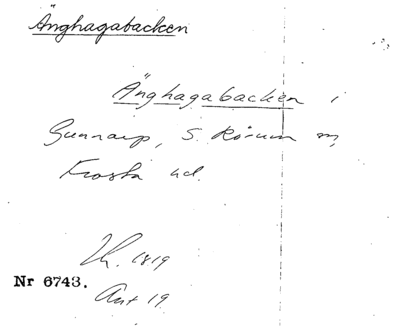 Änghagabacken
Änghagabacken i
Gunnarp, S. Rörum
Frosta hd.
1819
Nr 6743.
Ant 19